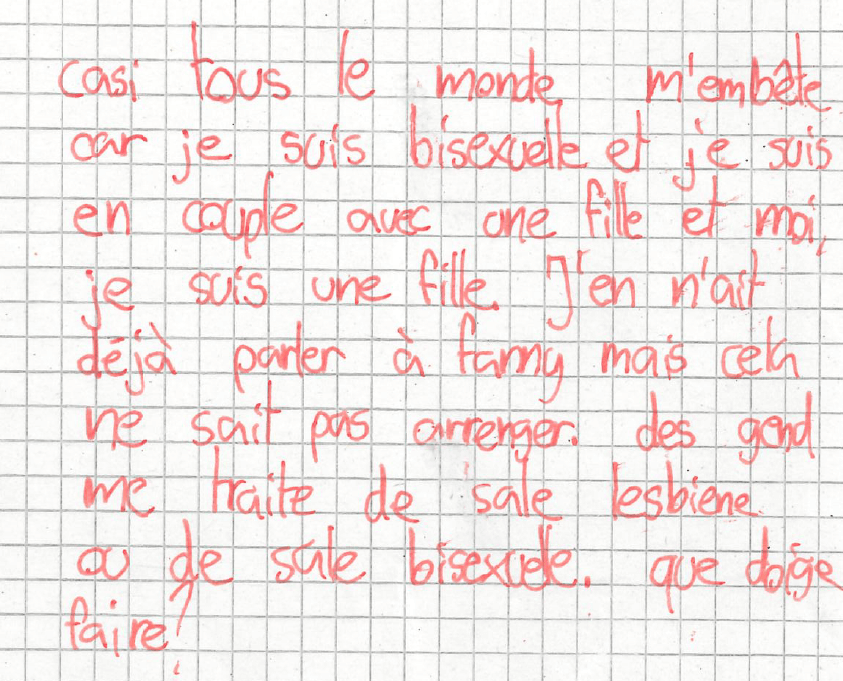 casi tous le monde m'embête
car je suis bisexuelle et je suis
en couple avec une fille et moi,
je suis une fille. J'en n'ait
déjà parler à fanny mais cela
ne sait pas arrenger. des gend
me traite de sale lesbiene
ou de sale bisexuele. que doige
faire?